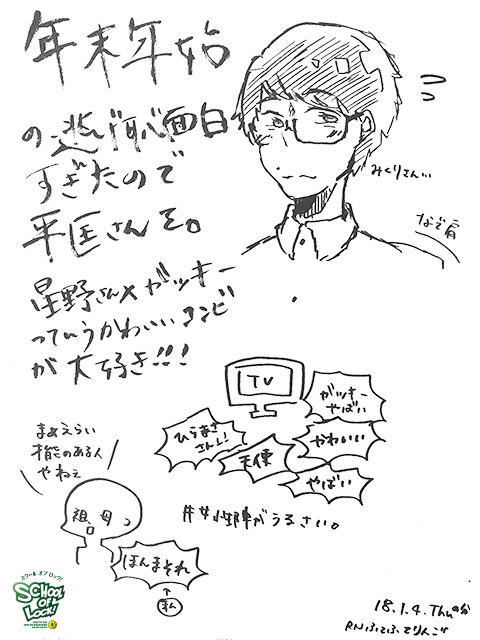 年末年始
の逃げ恥面白
すぎたので
平匡さんを。
星野さん×ガッキー
っていうかわいいコンビ
が大好き!!!
みくりさん…
なで肩
TV
ガッキー
やばい
ひらまさ
さんし!
かわいい
天使
やばい
まぁえらい
才能のある人
やねぇ
祖母
#女性陣がうるさい。
ほんまそれ
まん
スクールオブロック!
SCHOOL
OF
LOCK!
18.1.4.Thuの分
RN ふでふでりんご